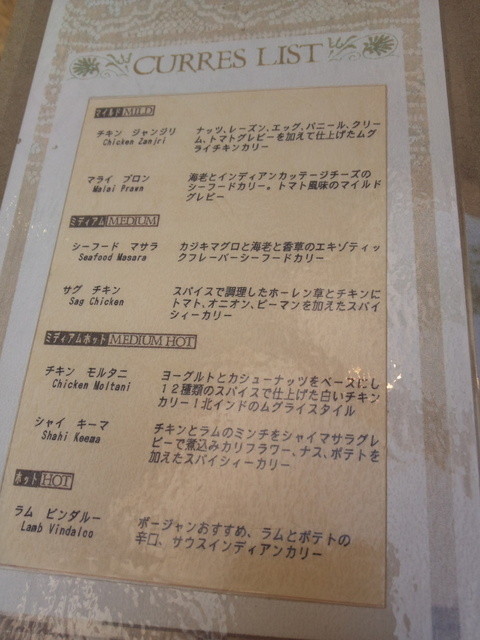 CURRES LIST
マイルド MILD
チキン ジャンジリ
Chicken Zanjri
ナッツ、レーズン、エッグ、パニール、クリー
ム、トマトグレビーを加えて仕上げたムグ
ライチキンカリー
マライ プロン
Malai Prawn
海老とインディアンカッテージチーズの
シーフードカリー。トマト風味のマイルド
グレビー
ミディアム MEDIUM
シーフード マサラ
Seafood Masara
カジキマグロと海老と香草のエキゾティッ
クフレーバーシーフードカリー
サグ チキン
Sag Chicken
スパイスで調理したホーレン草とチキンに
トマト、オニオン、ピーマンを加えたスパイ
シィーカリー
ミディアムホット MEDIUM HOT
チキン モルタニ
Chicken Moltani
ヨーグルトとカシューナッツをベースにし
12種類のスパイスで仕上げた白いチキン
カリー！北インドのムグライスタイル
シャイ キーマ
Shahi Keema
チキンとラムのミンチをシャイマサラグレ
ビーで煮込みカリフラワー、ナス、ポテトを
加えたスパイシィーカリー
ホット HOT
ラム ビンダルー
Lamb Vindaloo
ボージャンおすすめ、ラムとポテトの
辛口、サウスインディアンカリー